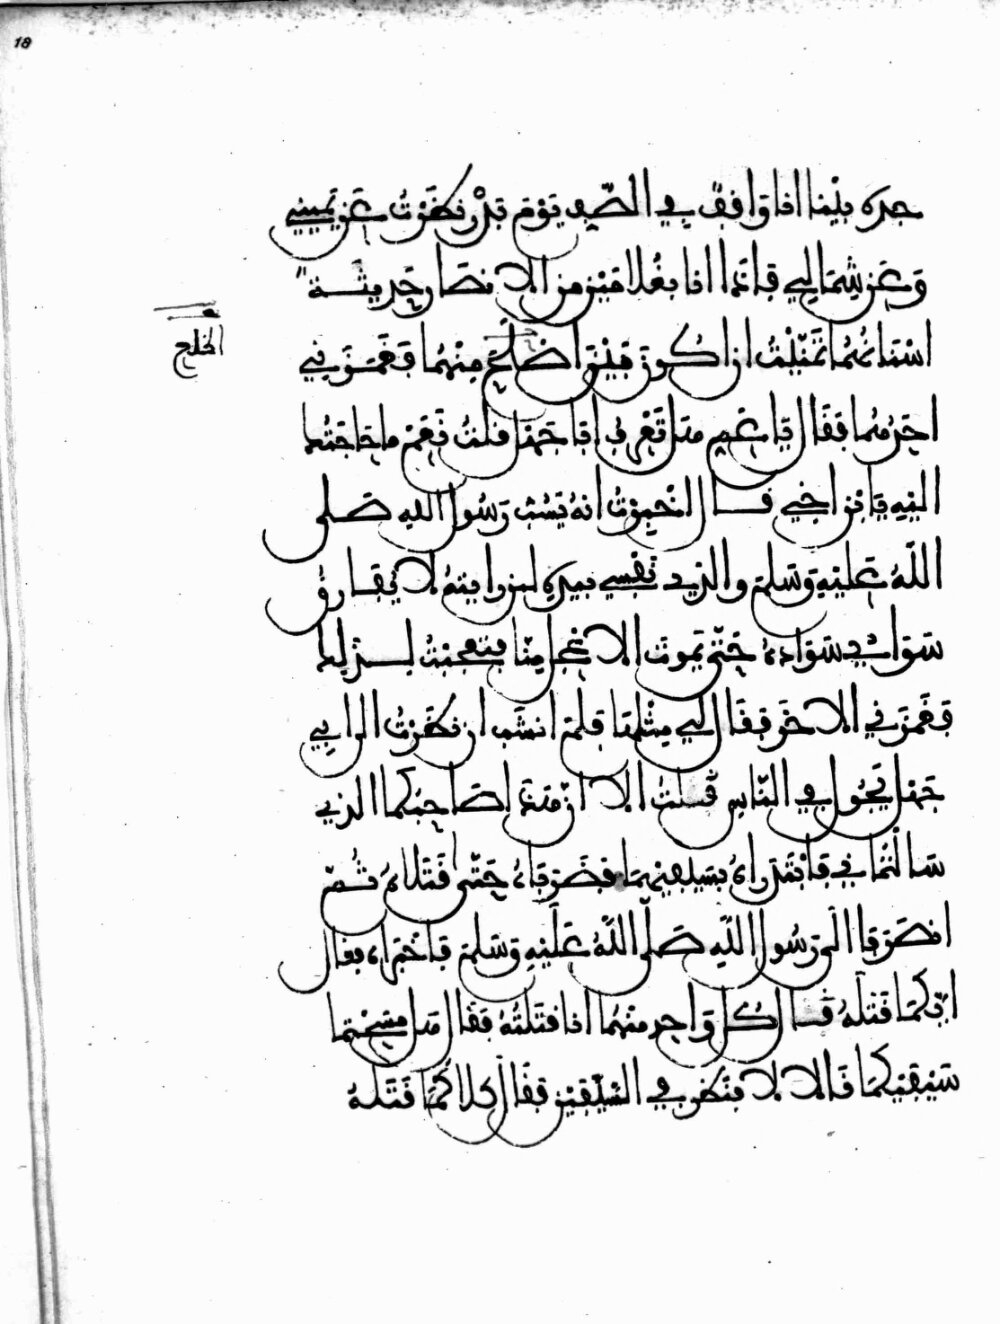 18
جده بينا انا واقف في الصف يوم بدر نظرت عن يميني
وعن شمالي فاذا انا بغلامين من الانصار حديثة
اسنانهما تمنيت ان اكون بين اضلع منهما فغمزني
اصلح
احدهما فقال يا عم هل تعرف ابا جهل قلت نعم ما حاجتك
اليه يا ابن اخي قال اخبرت انه يسب رسول الله صلى
الله عليه وسلم والذي نفسي بيده لئن رايته لا يفارق
سوادي سواده حتى يموت الاعجل منا فتعجبت لذلك
فغمزني الاخر فقال لي مثلها فلم انشب ان نظرت الى ابي
جهل يجول في الناس قلت الا ان هذا صاحبكما الذي
سالتماني فابتدراه بسيفيهما فضرباه حتى قتلاه ثم
انصرفا الى رسول الله صلى الله عليه وسلم فاخبراه فقال
ايكما قتله قال كل واحد منهما انا قتلته فقال هل مسحتما
سيفيكما قالا لا فنظر في السيفين فقال كلاكما قتله